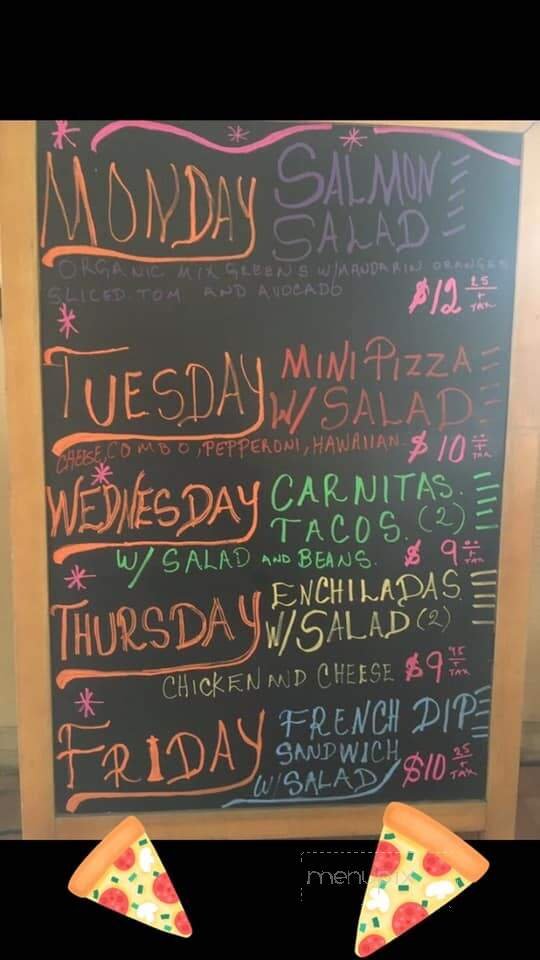 MONDAY SALMON
SALAD
ORGANIC MIX GREENS W/MANDARIN ORANGES
SLICED TOM AND AVOCADO $12 25 + TAX
TUESDAY MINI PIZZA
W/ SALAD
CHEESE, COMBO, PEPPERONI, HAWAIIAN $10 + TAX
WEDNESDAY CARNITAS
TACOS. (2)
W/ SALAD AND BEANS. $9 + TAX
THURSDAY ENCHILADAS
W/SALAD (2)
CHICKEN AND CHEESE $9 95 + TAX
FRIDAY FRENCH DIP
SANDWICH
W/SALAD $10 25 + TAX
menupix